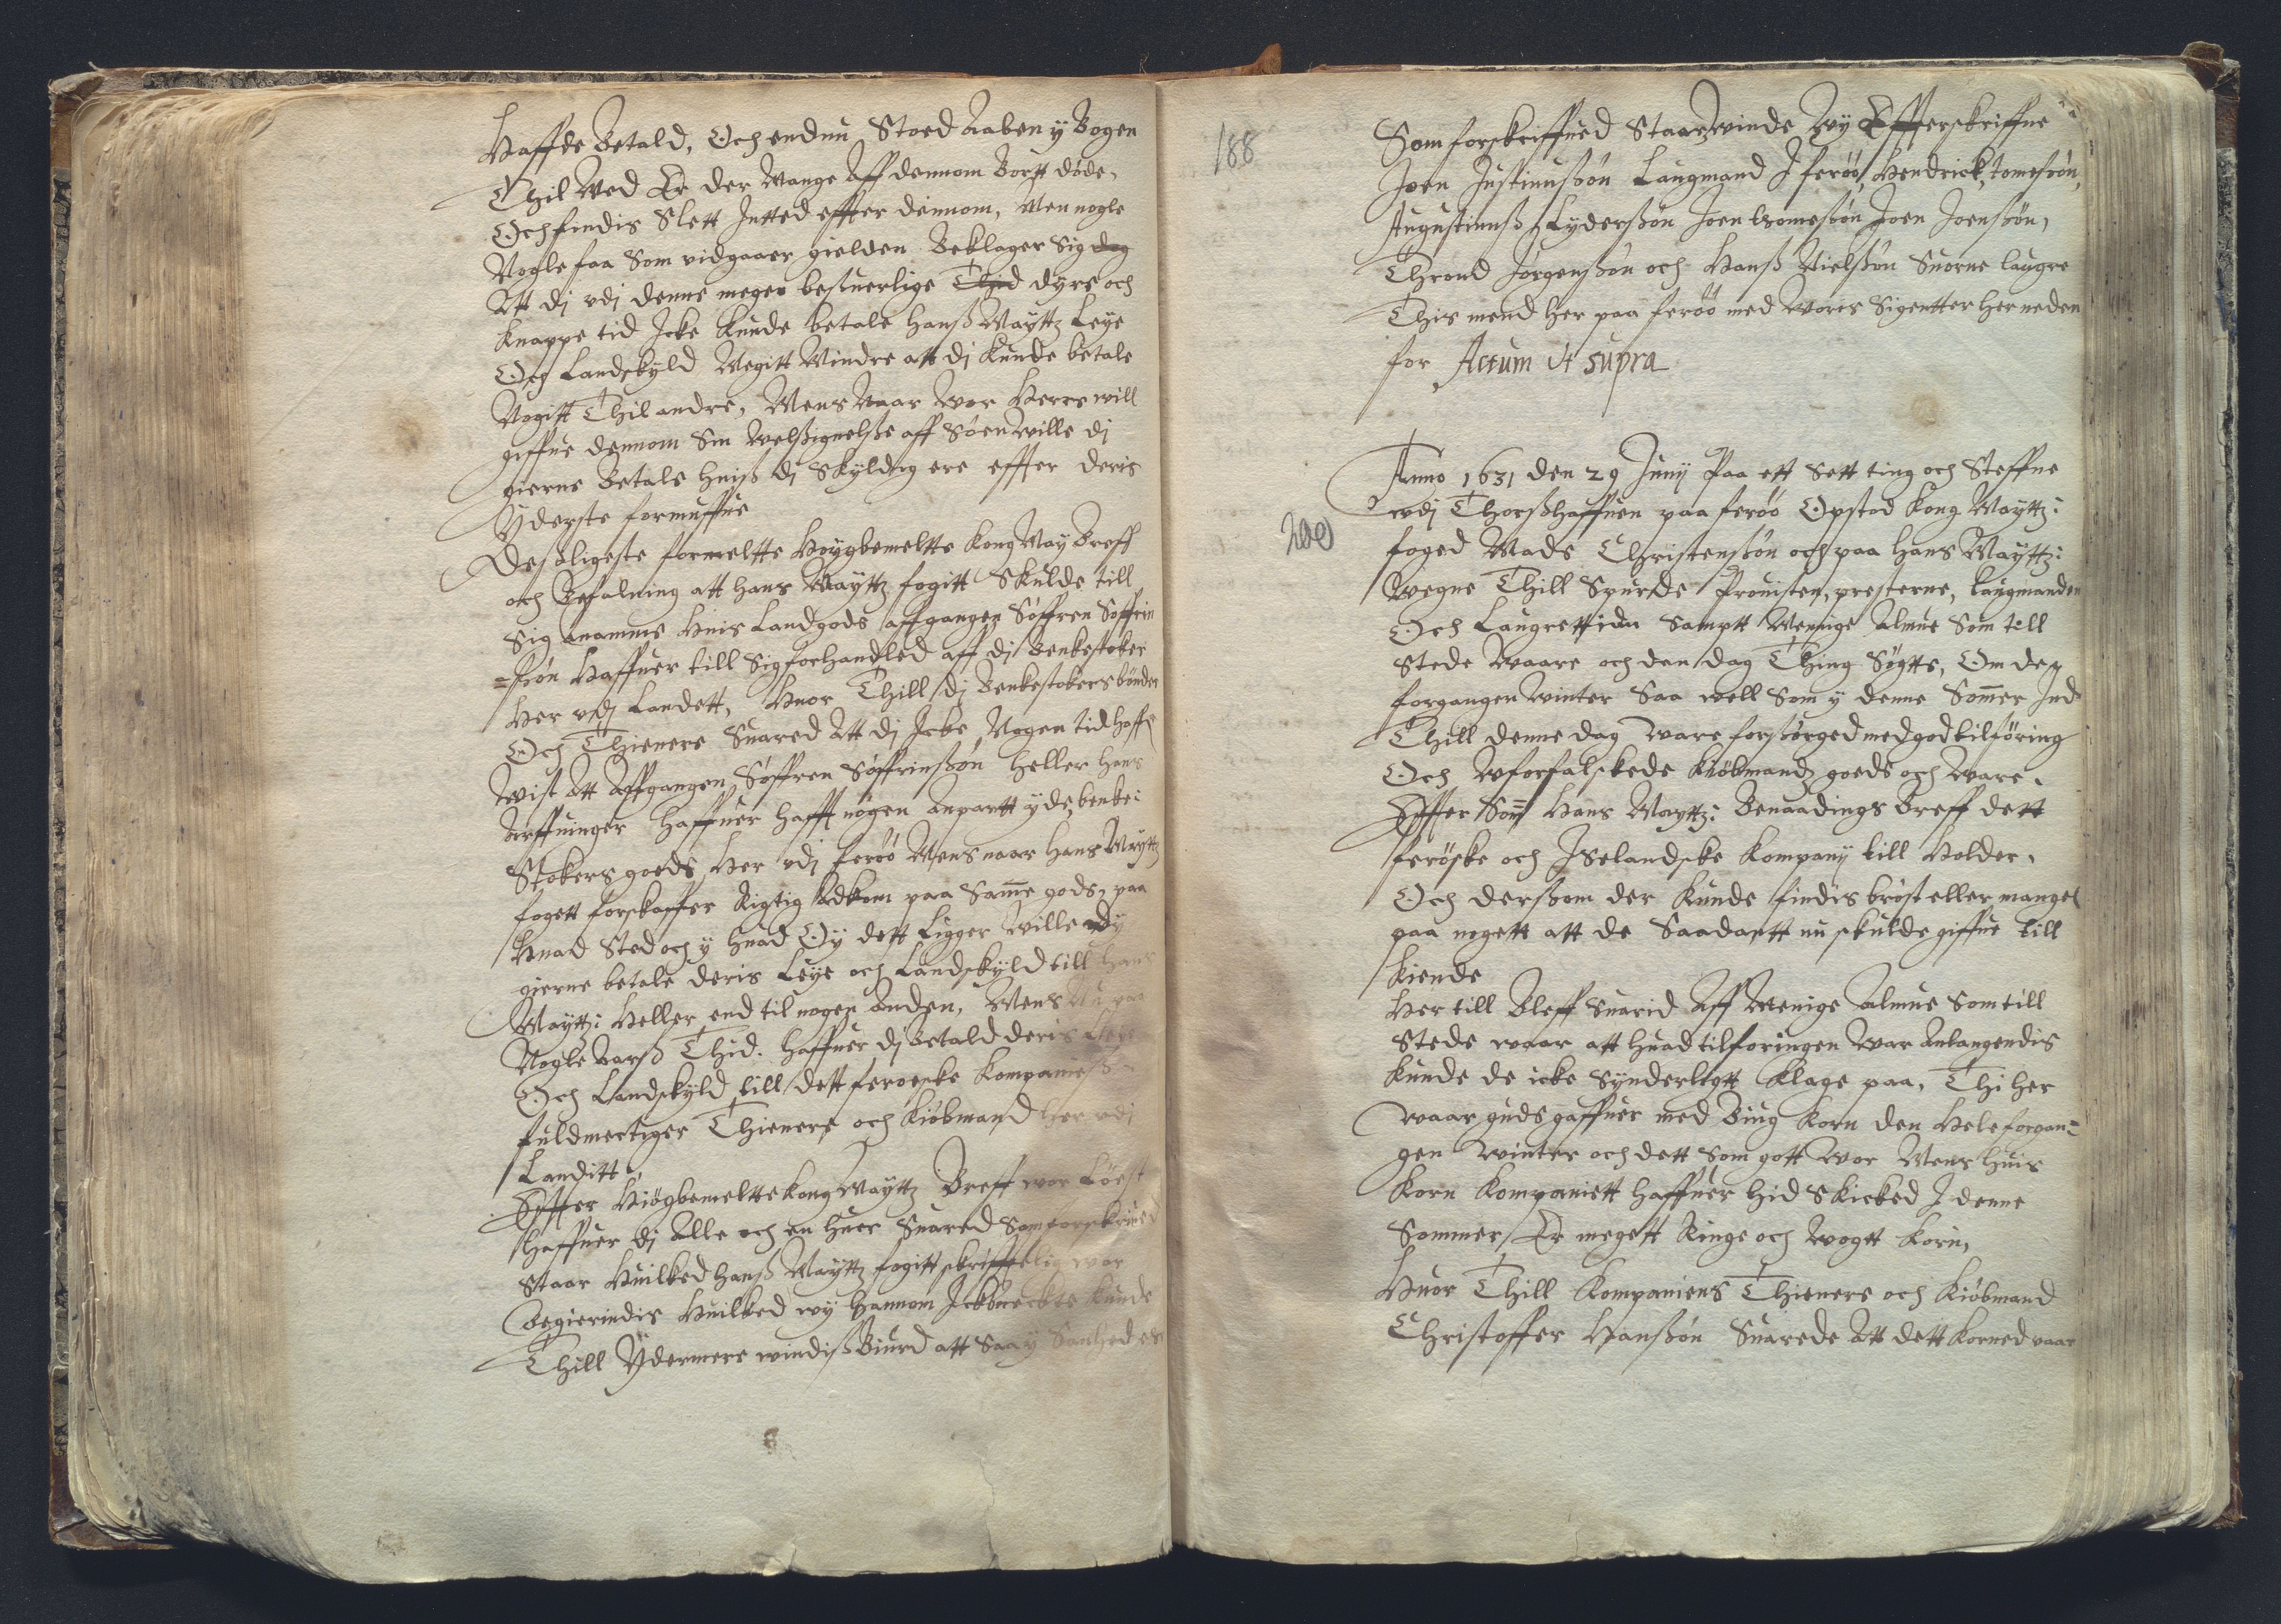 Haffde Betald, Och endnu Stoed Aaben y Bogen
Thil Wed Er der Mange Aff dennom Bortt døde,
Och findis Slett Intted effter dennom, Men nogle
Nogle faa Som vidgaaer gielden Beklager Sig dog
Att dj vdj denne meget beswerlige Thid dyre och
Knappe tid Icke Kunde betale Hanß Mayttz Leye
Og Landskyld Megitt Mindre att dj Kunde betale
Nogitt Thil andre, Mens Naar Wor Herre will
giffue dennom Sin Welßignelße aff Søen wille dj
gierne Betale huiß dj Skyldig ere effter deris
Yderste formuffue
Desøligeste formeltte Høygbemeltte Kong May Breff
och Befalning att hans Mayttz fogitt Skulde till
Sig anamme Huis Landgods affgangen Søffren Søffrin
=søn Haffuer till Sig forhandled aff dj Benkestoker
Her vdj Landett, Huor Thill dj Benkestokers bønder
Och Thienere Suared Att dj Icke Nogen tid haffr
Wist Att Affgangen Søffren Søffrinßøn heller Hans
Arffuinger Haffuer hafft nogen anpartt y de benke:
Stokers goeds Her vdj ferøø Mens naar Hans Maytz
fogett forskaffer Rigtig Adkom paa Samme gods, paa
Huad Sted och y huad Øy dett Ligger wille dy
gierne betale deris Leye och Landskyld till Hans
Mayttz: Heller end til nogen anden, Mens Nu paa
Nogle Aarß Thid. haffuer dj Betald deris Leye
Och Landskyld till dett feroeske Kompanieß
fuldmectiger Thienere och Kiøbmand her vdj
Landitt
Effter Høigbemeltte Kong Mayttz Breff wor Løest
Haffuer dj Alle och en huer Suared Som forskreued
Staar Huilked hanß Mayttz fogitt skrifftelig wor
Begierindis Huilked wy hannom Icke necte Kunde
Thill Ydermere windisß Biurd att Saa y Sanhed er
188
Som forskriffued Staar, winde Wy Effterskriffne
Joen Justinußøn Laugmand I ferøø, Hendrick, tomesøn,
Augustinuß Lyderßøn Joen tomesøn Joen Joenßøn,
Thrond Jørgenßøn och Hanß Nielßøn Suorne laugre
This mend her paa ferøø med Woris Sigentter her neden
for Actum Ut supra
Anno 1631 den 29 Junij Paa ett Sett ting och Steffne
vdj Thorßhaffuen paa ferøø Opstod Kong Mayttz:
foged Mads Christenßøn och paa Hans Mayttz:
Wegne Thill Spurde Prouisten, presterne, laugmanden
Och Laugrettidn Samptt Menige Almue Som till
Stede Waare och den dag Thing Søgtte, Om de y
forgangen winter Saa well Som y denne Sommer Ind
Thill denne dag Ware forsørged med god tilføring
Och Wforfalskede Kiøbmandz goeds och Ware.
Effter Som Hans Mayttz: Benaadings Breff dett
ferøske och Iselandske Kompanij till Holder.
Och derßom der Kunde findis brøst eller mangel
paa nogett att de Saadantt nu skulde giffue till
Kiende
Her till Bleff Suarid Aff Menige Almue Som till
Stede waar att huad tilføringen War Anlangendis
Kunde de icke Synderligtt Klage paa, Thi her
waar guds gaffuer med Biug Korn den Hele forgan=
gen winter och dett Som gott Wor Mens huis
Korn Kompaniett haffuer hid Skicked I denne
Sommer, Er megett Ringe och wogtt Korn,
Huor Thill Kompaniens Thienere och Kiøbmand
Christoffer Hanßøn Suarede Att dett Korned waar